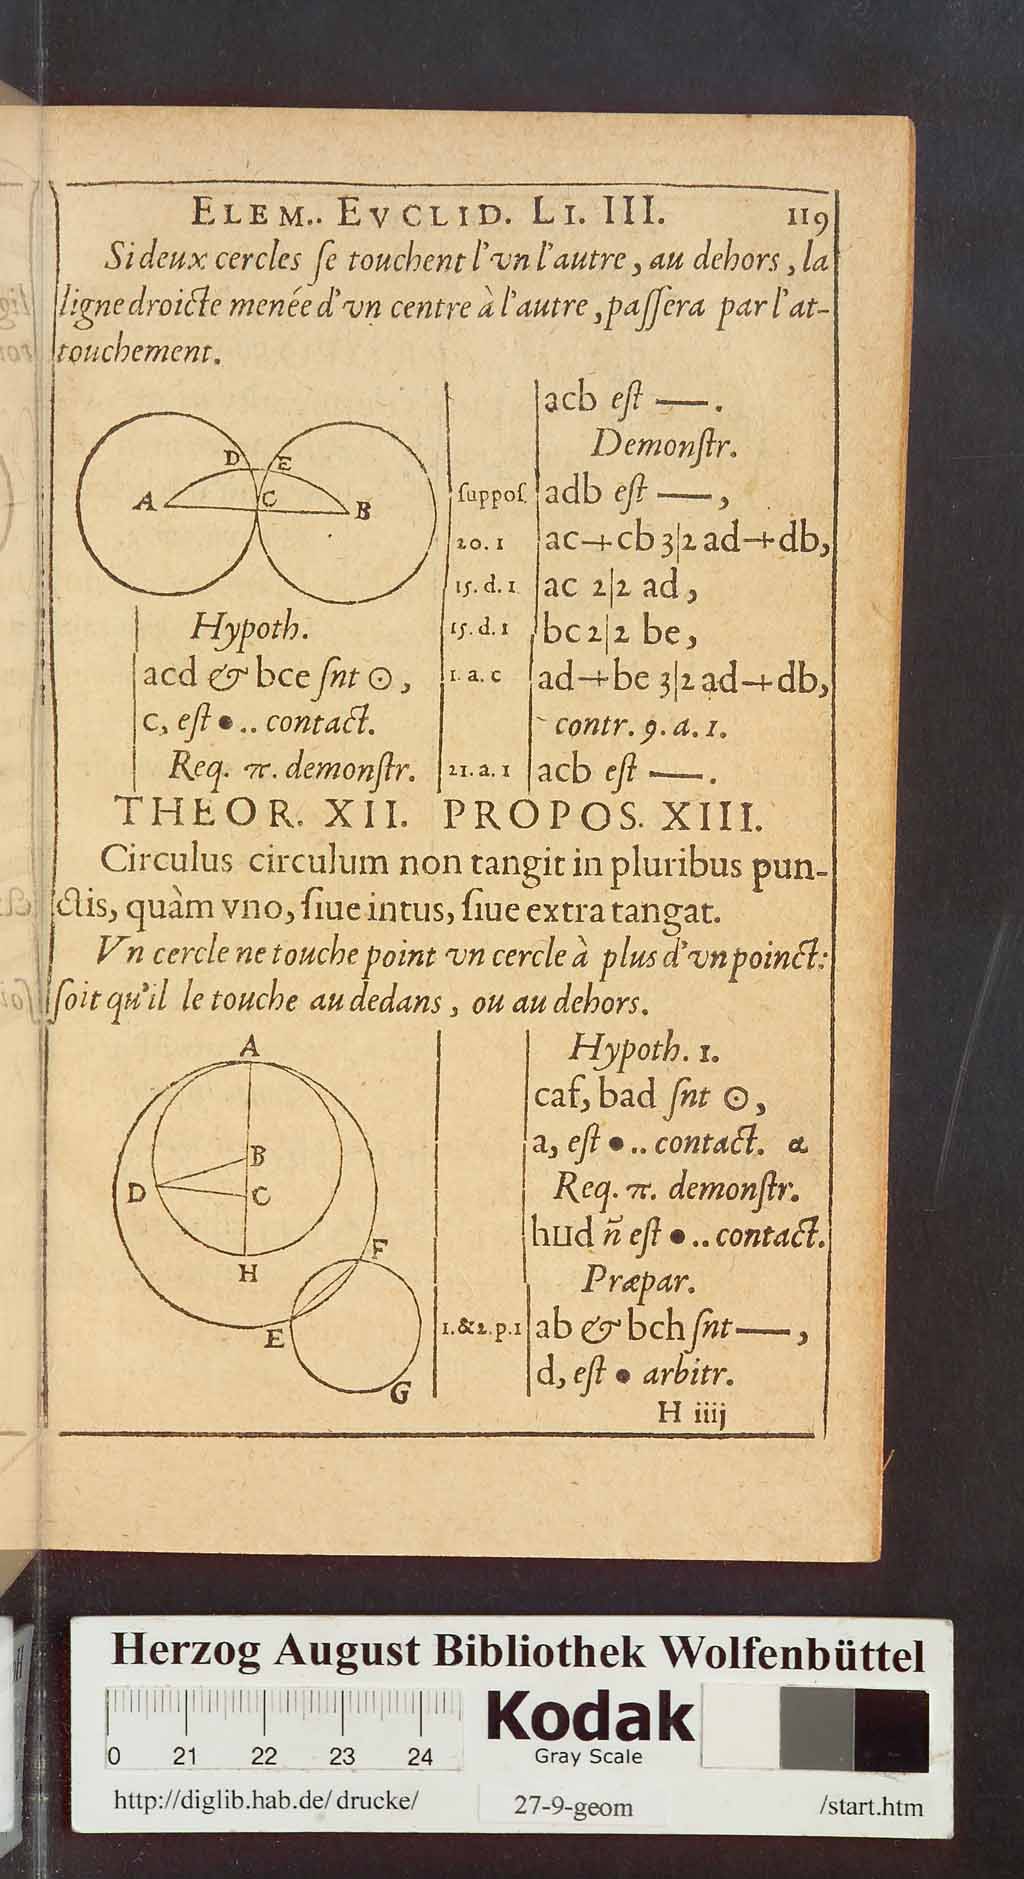 ELEM.. EVCLID. LI. III. 119
Si deux cercles ſe touchent l'vn l'autre, au dehors, la
ligne droicte menée d'vn centre à l'autre, paſſera par l'at-
touchement.
D E
A C B
Hypoth.
acd & bce ſnt ⊙,
c, eſt •.. contact.
Req. π. demonſtr.
acb eſt —.
Demonſtr.
ſuppoſ. adb eſt —,
20. 1 ac+cb 3|2 ad+db,
15. d. 1 ac 2|2 ad,
15. d. 1 bc 2|2 be,
1. a. c ad+be 3|2 ad+db,
contr. 9. a. 1.
21. a. 1 acb eſt —.
THEOR. XII. PROPOS. XIII.
Circulus circulum non tangit in pluribus pun-
ctis, quàm vno, ſiue intus, ſiue extra tangat.
Vn cercle ne touche point vn cercle à plus d'vn poinct:
ſoit qu'il le touche au dedans, ou au dehors.
A
B
D C
F
H
E
G
Hypoth. 1.
caf, bad ſnt ⊙,
a, eſt •.. contact. α
Req. π. demonſtr.
hud n̄ eſt •.. contact.
Præpar.
1. &2. p. 1 ab & bch ſnt —,
d, eſt • arbitr.
H iiij
Herzog August Bibliothek Wolfenbüttel
0 21 22 23 24
Kodak
Gray Scale
http://diglib.hab.de/drucke/ 27-9-geom /start.htm